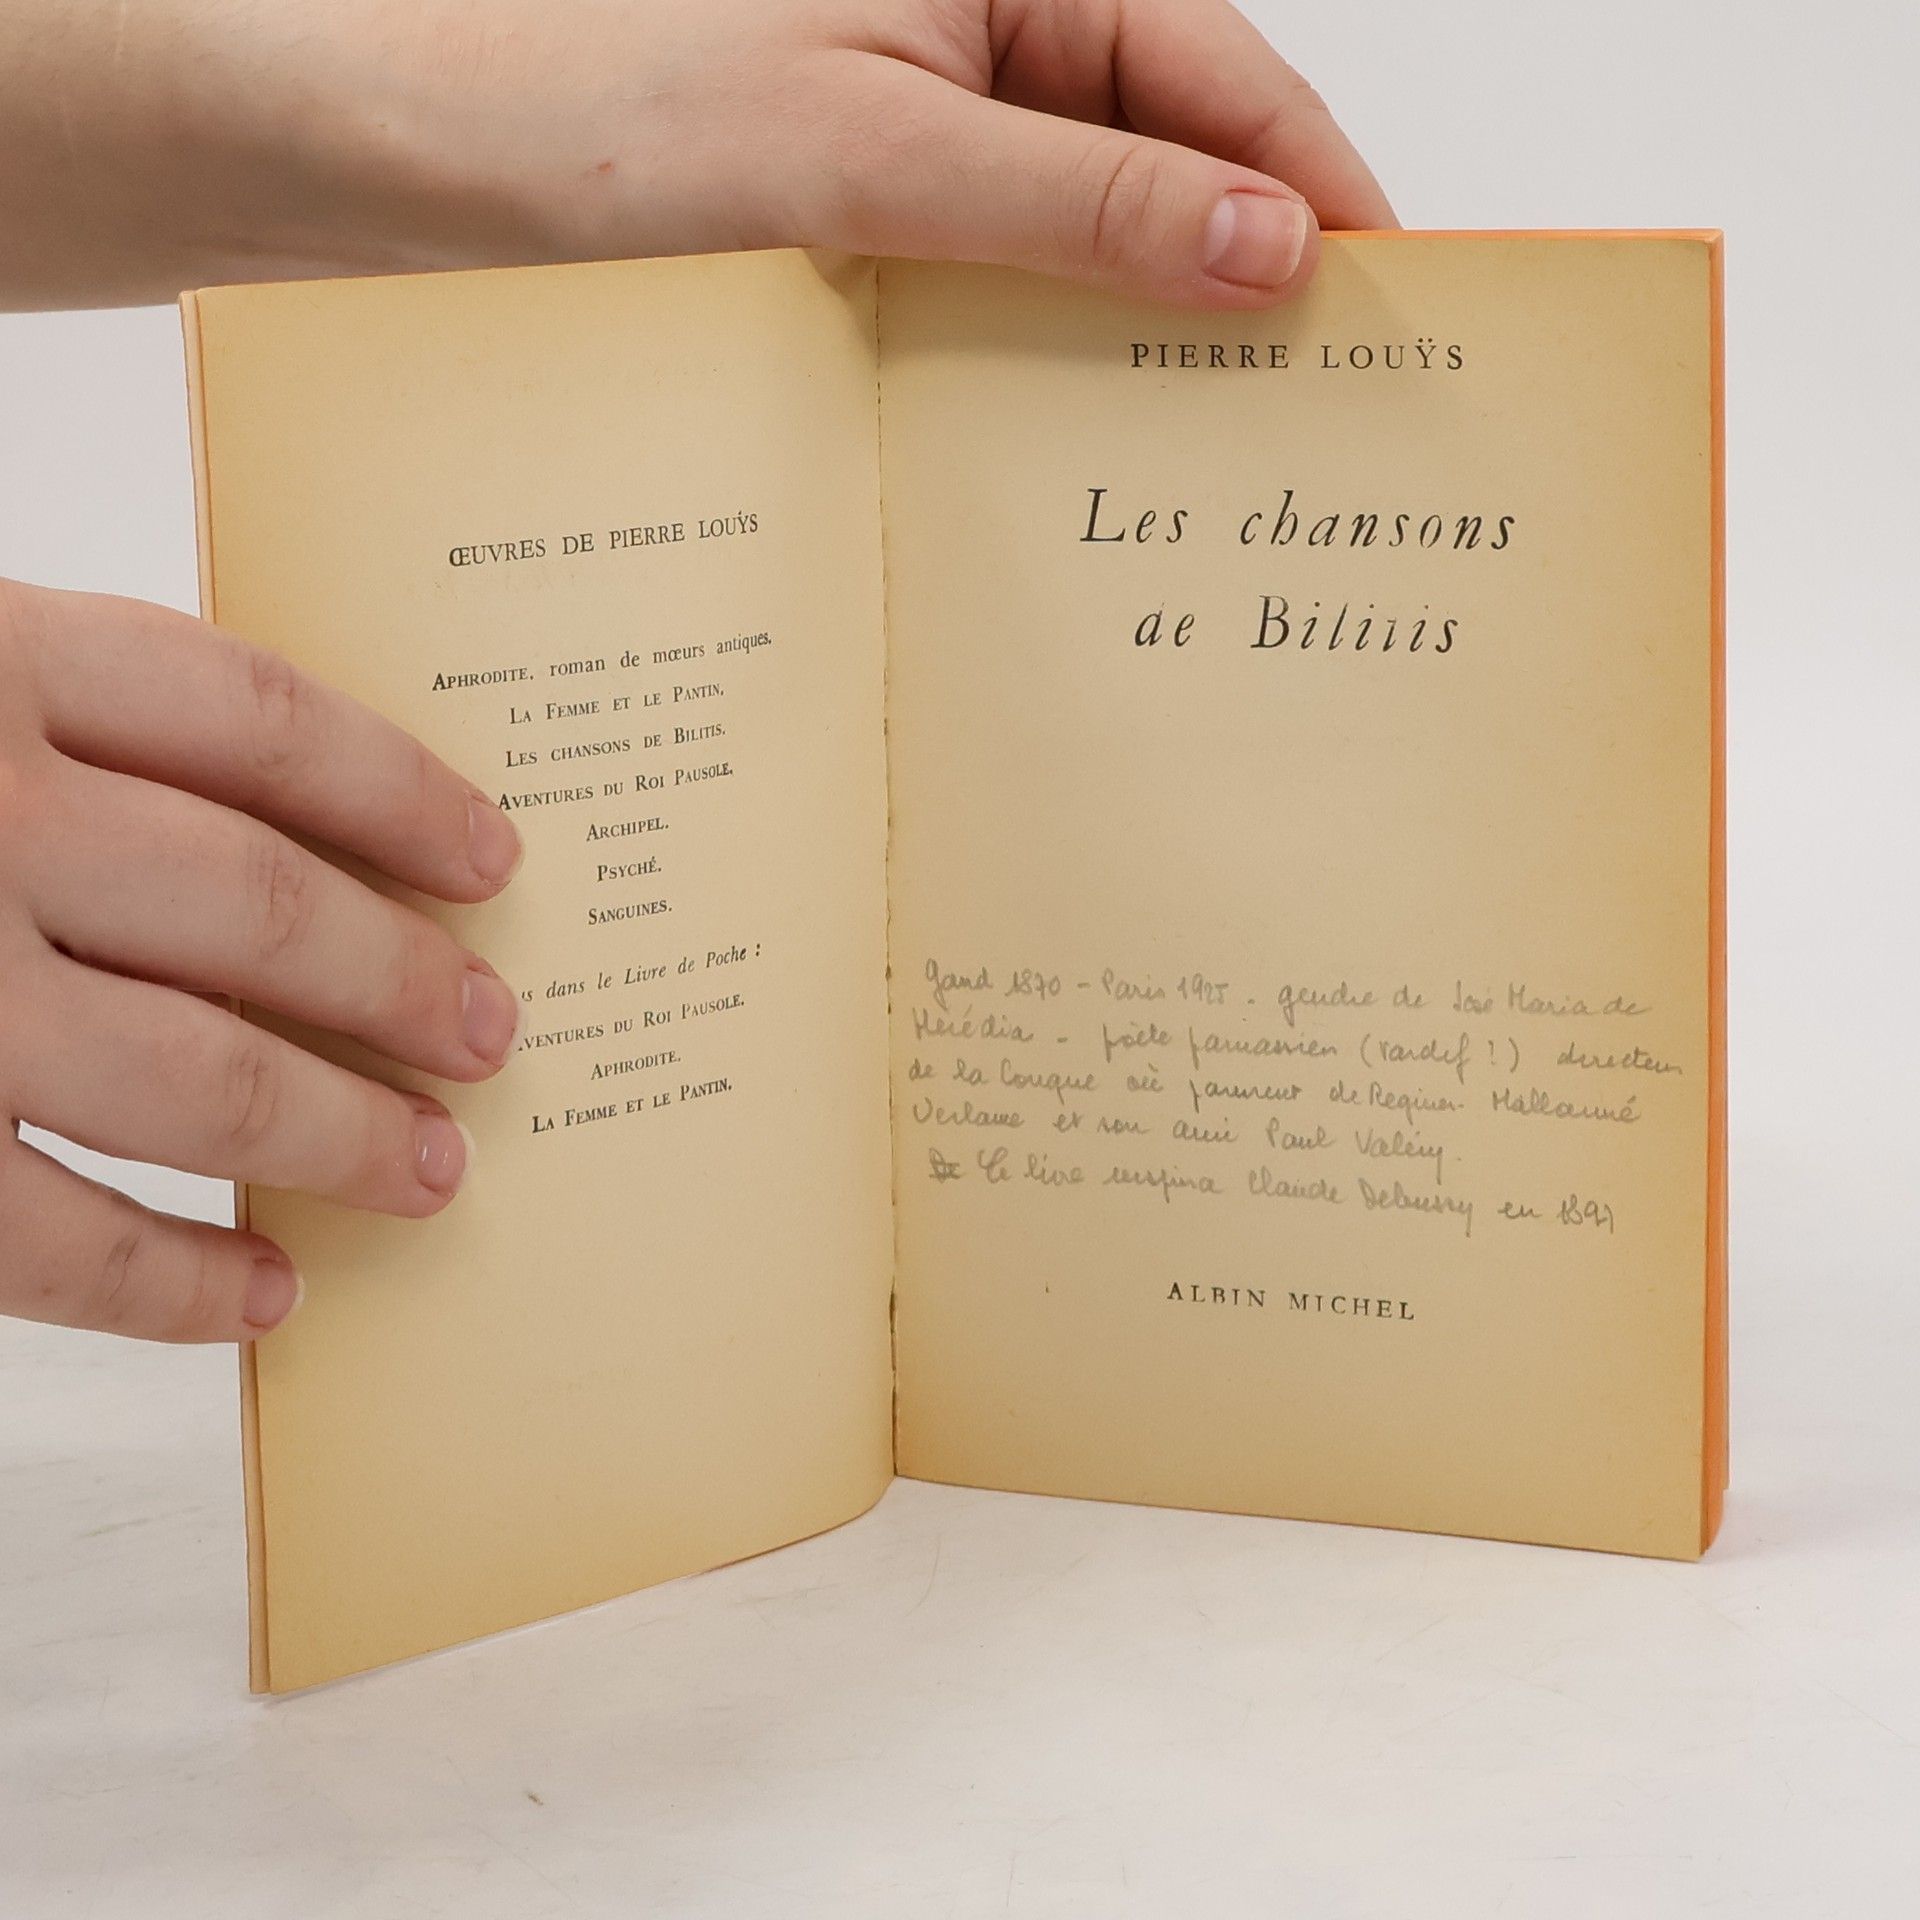 ŒUVRES DE PIERRE LOUŸS
APHRODITE, roman de mœurs antiques.
LA FEMME ET LE PANTIN.
LES CHANSONS DE BILITIS.
AVENTURES DU ROI PAUSOLE.
ARCHIPEL.
PSYCHÉ.
SANGUINES.
dans le Livre de Poche :
VENTURES DU ROI PAUSOLE.
APHRODITE.
LA FEMME ET LE PANTIN.
PIERRE LOUŸS
Les chansons
de Bilitis
Gand 1870 - Paris 1925 - gendre de José Maria de
Herédia - poète parnassien (tardif !) directeur
de la Conque où parurent de Regnier Mallarmé
Verlaine et son ami Paul Valéry.
Ce livre inspira Claude Debussy en 1897
ALBIN MICHEL